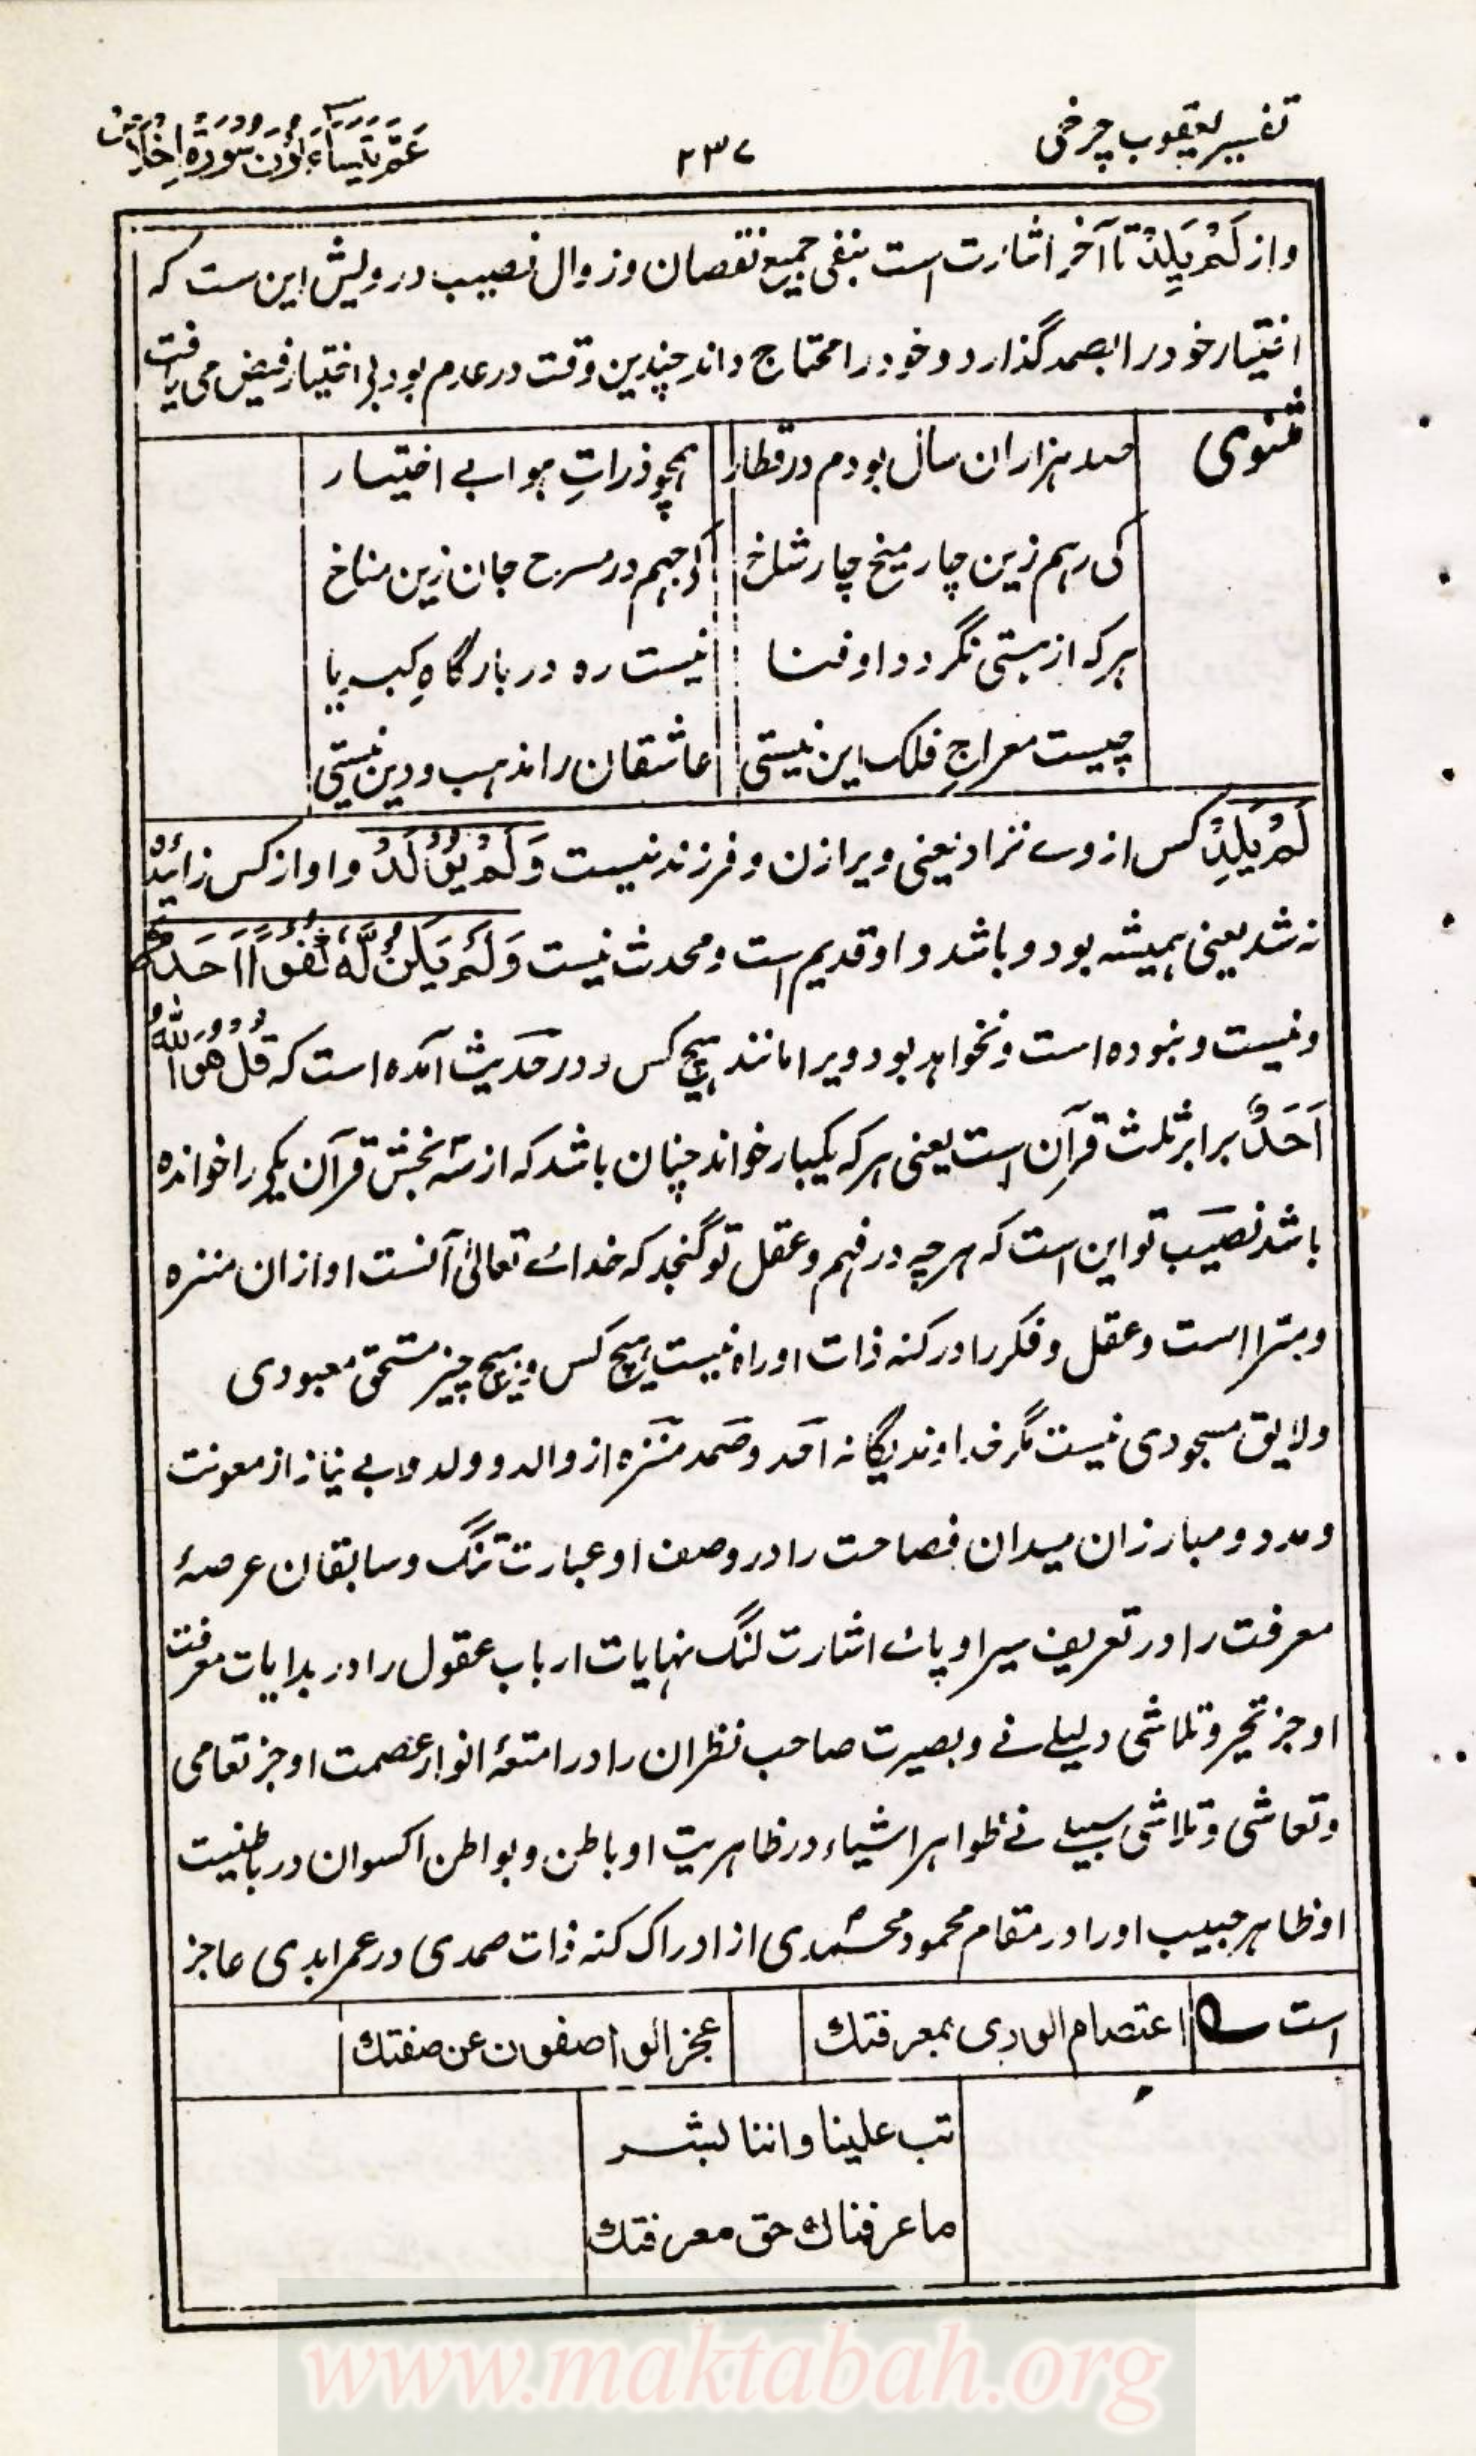 تفسیر یعقوب چرخی
۲۳۷
عم یتساءلون سورة اخلاص
و از لَمْ یَلِدْ تا آخر اشارت است بنفی جمیع نقصان و زوال نصیب درویش این ست که
اختیار خود را بصمد گذارد و خود را محتاج داند چندین وقت در عدم بود بی اختیار فیض می یافت
مثنوی
صد هزاران سال بودم در قطار
همچو ذراتِ هوا بے اختیار
کی رهم زین چار میخ چار شاخ
در مسرح جان زین مناخ
هرکه از هستی نگردد او فنا
نیست ره در بارگاهِ کبریا
چیست معراجِ فلک این نیستی
عاشقان را مذهب و دین نیستی
لَمْ یَلِدْ کس از وے نزاد یعنی ویرا زن و فرزند نیست وَلَمْ یُوْلَدْ و او از کس زائیده
نه شد یعنی همیشه بود و باشد و او قدیم است و محدث نیست وَلَمْ یَکُنْ لَّهٗ کُفُوًا اَحَدٌ
و نیست و نبوده است و نخواهد بود ویرا مانند هیچ کس و در حدیث آمده است که قُلْ هُوَ اللّٰهُ
اَحَدٌ برابر ثلث قرآن است یعنی هرکه یکبار خواند چنان باشد که از سه بخش قرآن یکی را خوانده
باشد نصیب تو این است که هر چه در فهم و عقل تو گنجد که خداے تعالیٰ آنست او ازان منزه
و مبرا است و عقل و فکر را در کنه ذات او راه نیست هیچ کس و هیچ چیز مستحق معبودی
و لایق مسجودی نیست مگر خداوند یگانه احد و صمد منزه از والد و ولد و بے نیاز از معونت
و مدد و مبارزان میدان فصاحت را در وصف او عبارت تنگ و سابقان عرصهٔ
معرفت را در تعریف سیر او پاے اشارت لنگ نهایات ارباب عقول را در بدایات معرفت
او جز تحیر و تلاشی دلیلے نے و بصیرت صاحب نظران را در اشعهٔ انوار عصمت او جز تعامی
و تعاشی و تلاشی سبیلے نے ظواهر اشیاء در ظاهریت او باطن و بواطن اکوان در باطنیت
او ظاهر حبیب او را در مقام محمود محمدی از ادراک کنه ذات صمدی در عمر ابدی عاجز
است
اعتصام الوری بمعرفتك
عجز الواصفون عن صفتك
تب علینا و اننا بشر
ما عرفناك حق معرفتك
www.maktabah.org